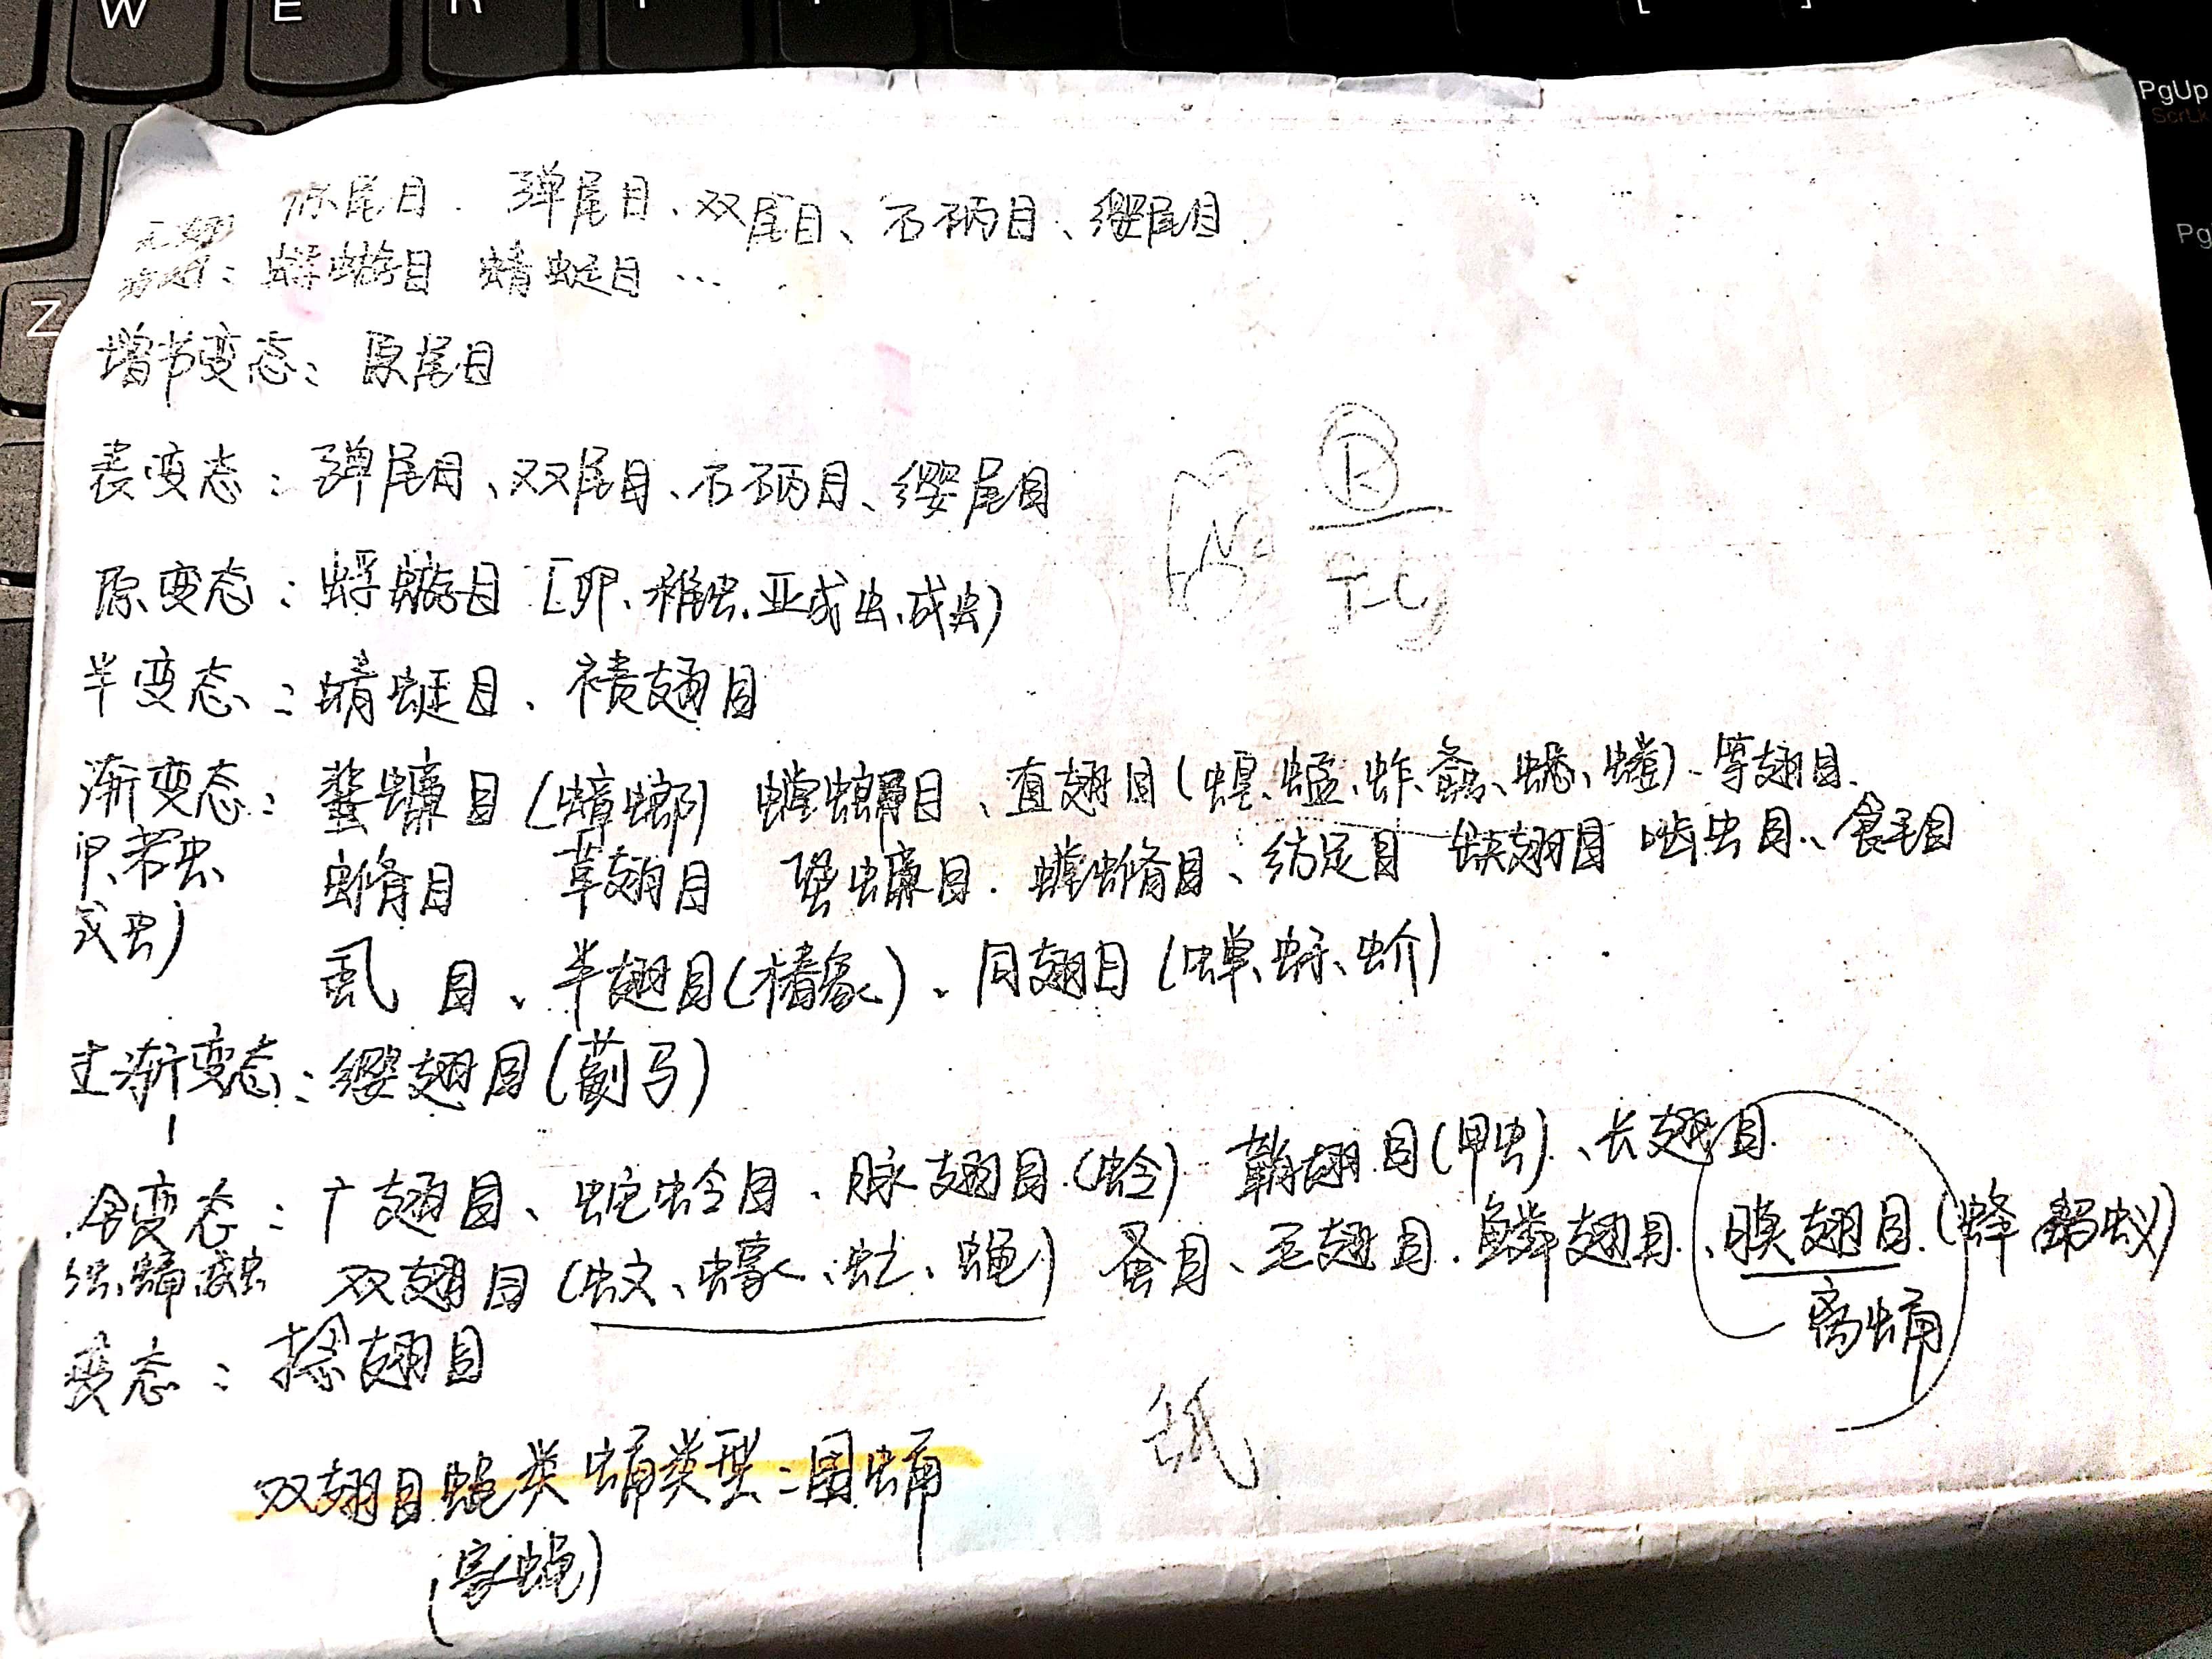 W E R
PgUp
ScrLk
Pg
Z
无翅 原尾目、弹尾目、双尾目、石蛃目、缨尾目
有翅：蜉蝣目 蜻蜓目 …
增节变态：原尾目
表变态：弹尾目、双尾目、石蛃目、缨尾目
原变态：蜉蝣目［卵、稚虫、亚成虫、成虫）
半变态：蜻蜓目、襀翅目
渐变态：蜚蠊目（蟑螂）螳螂目、直翅目（蝗、蜢、蚱、螽、蟋、蟀）、等翅目、
卵、若虫、 虫脩目 革翅目 蛩蠊目、螳虫脩目、纺足目 缺翅目 啮虫目、食毛目
成虫） 虱 目、半翅目（椿象）、同翅目（蝉、蚜、蚧）
过渐变态：缨翅目（蓟马）
全变态：广翅目、蛇蛉目、脉翅目（蛉）鞘翅目（甲虫）、长翅目
幼虫、蛹、成虫 双翅目（蚊、蠓、虻、蝇）蚤目、毛翅目、鳞翅目、膜翅目（蜂 蚂蚁）
离蛹
变态：捻翅目
双翅目蝇类蛹类型：围蛹
（家蝇）